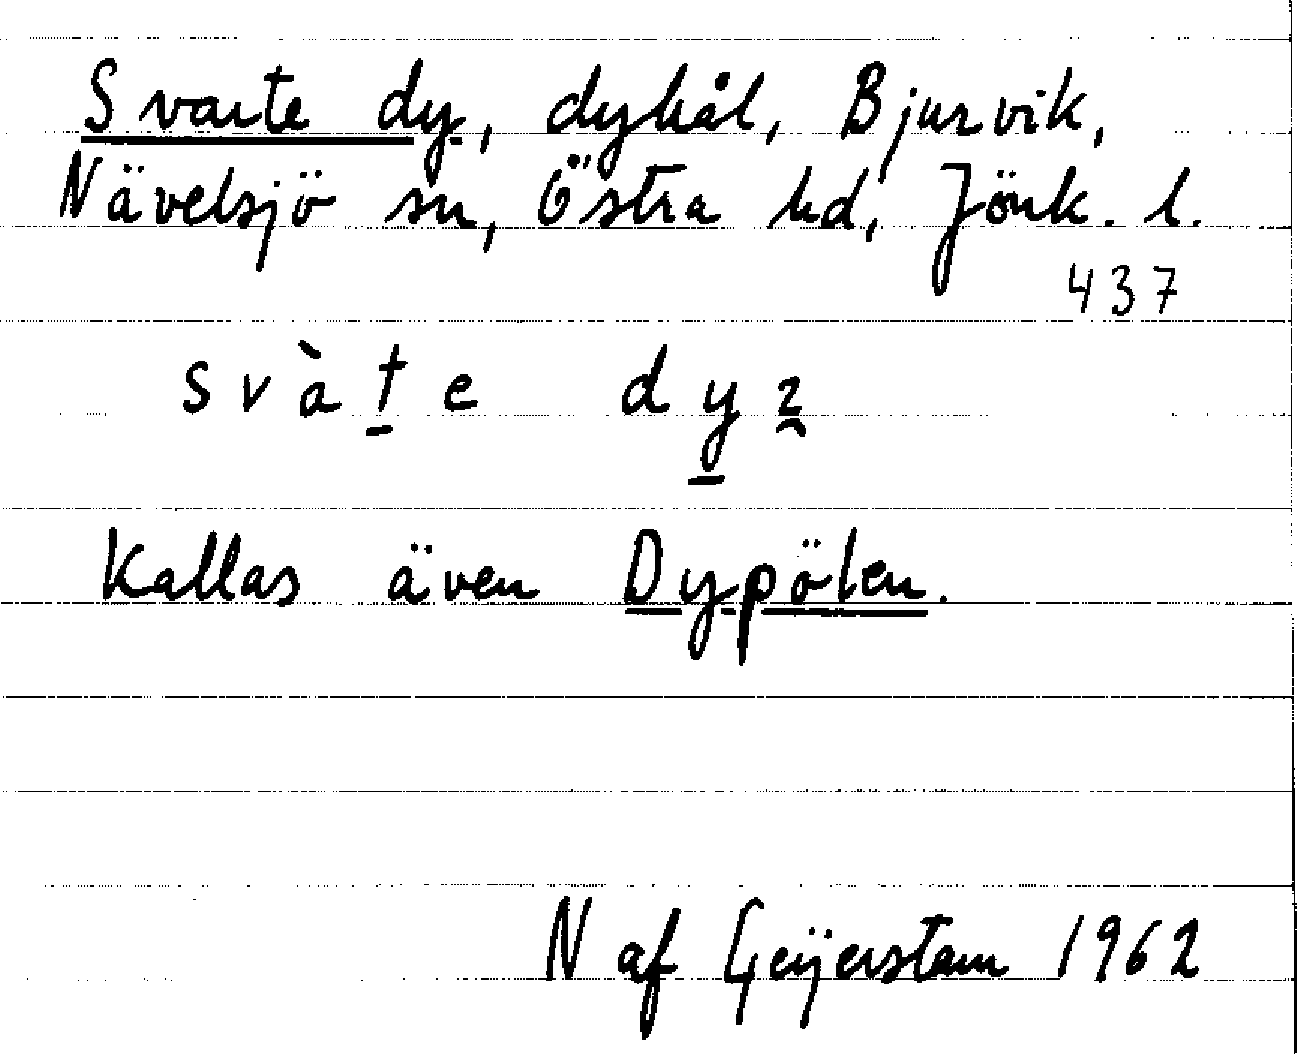 Svarte dy, dyhål, Bjurvik,
Nävelsjö sn, Östra hd, Jönk. l.
437
svàte dyz
Kallas även Dypölen.
N af Geijerstam 1962